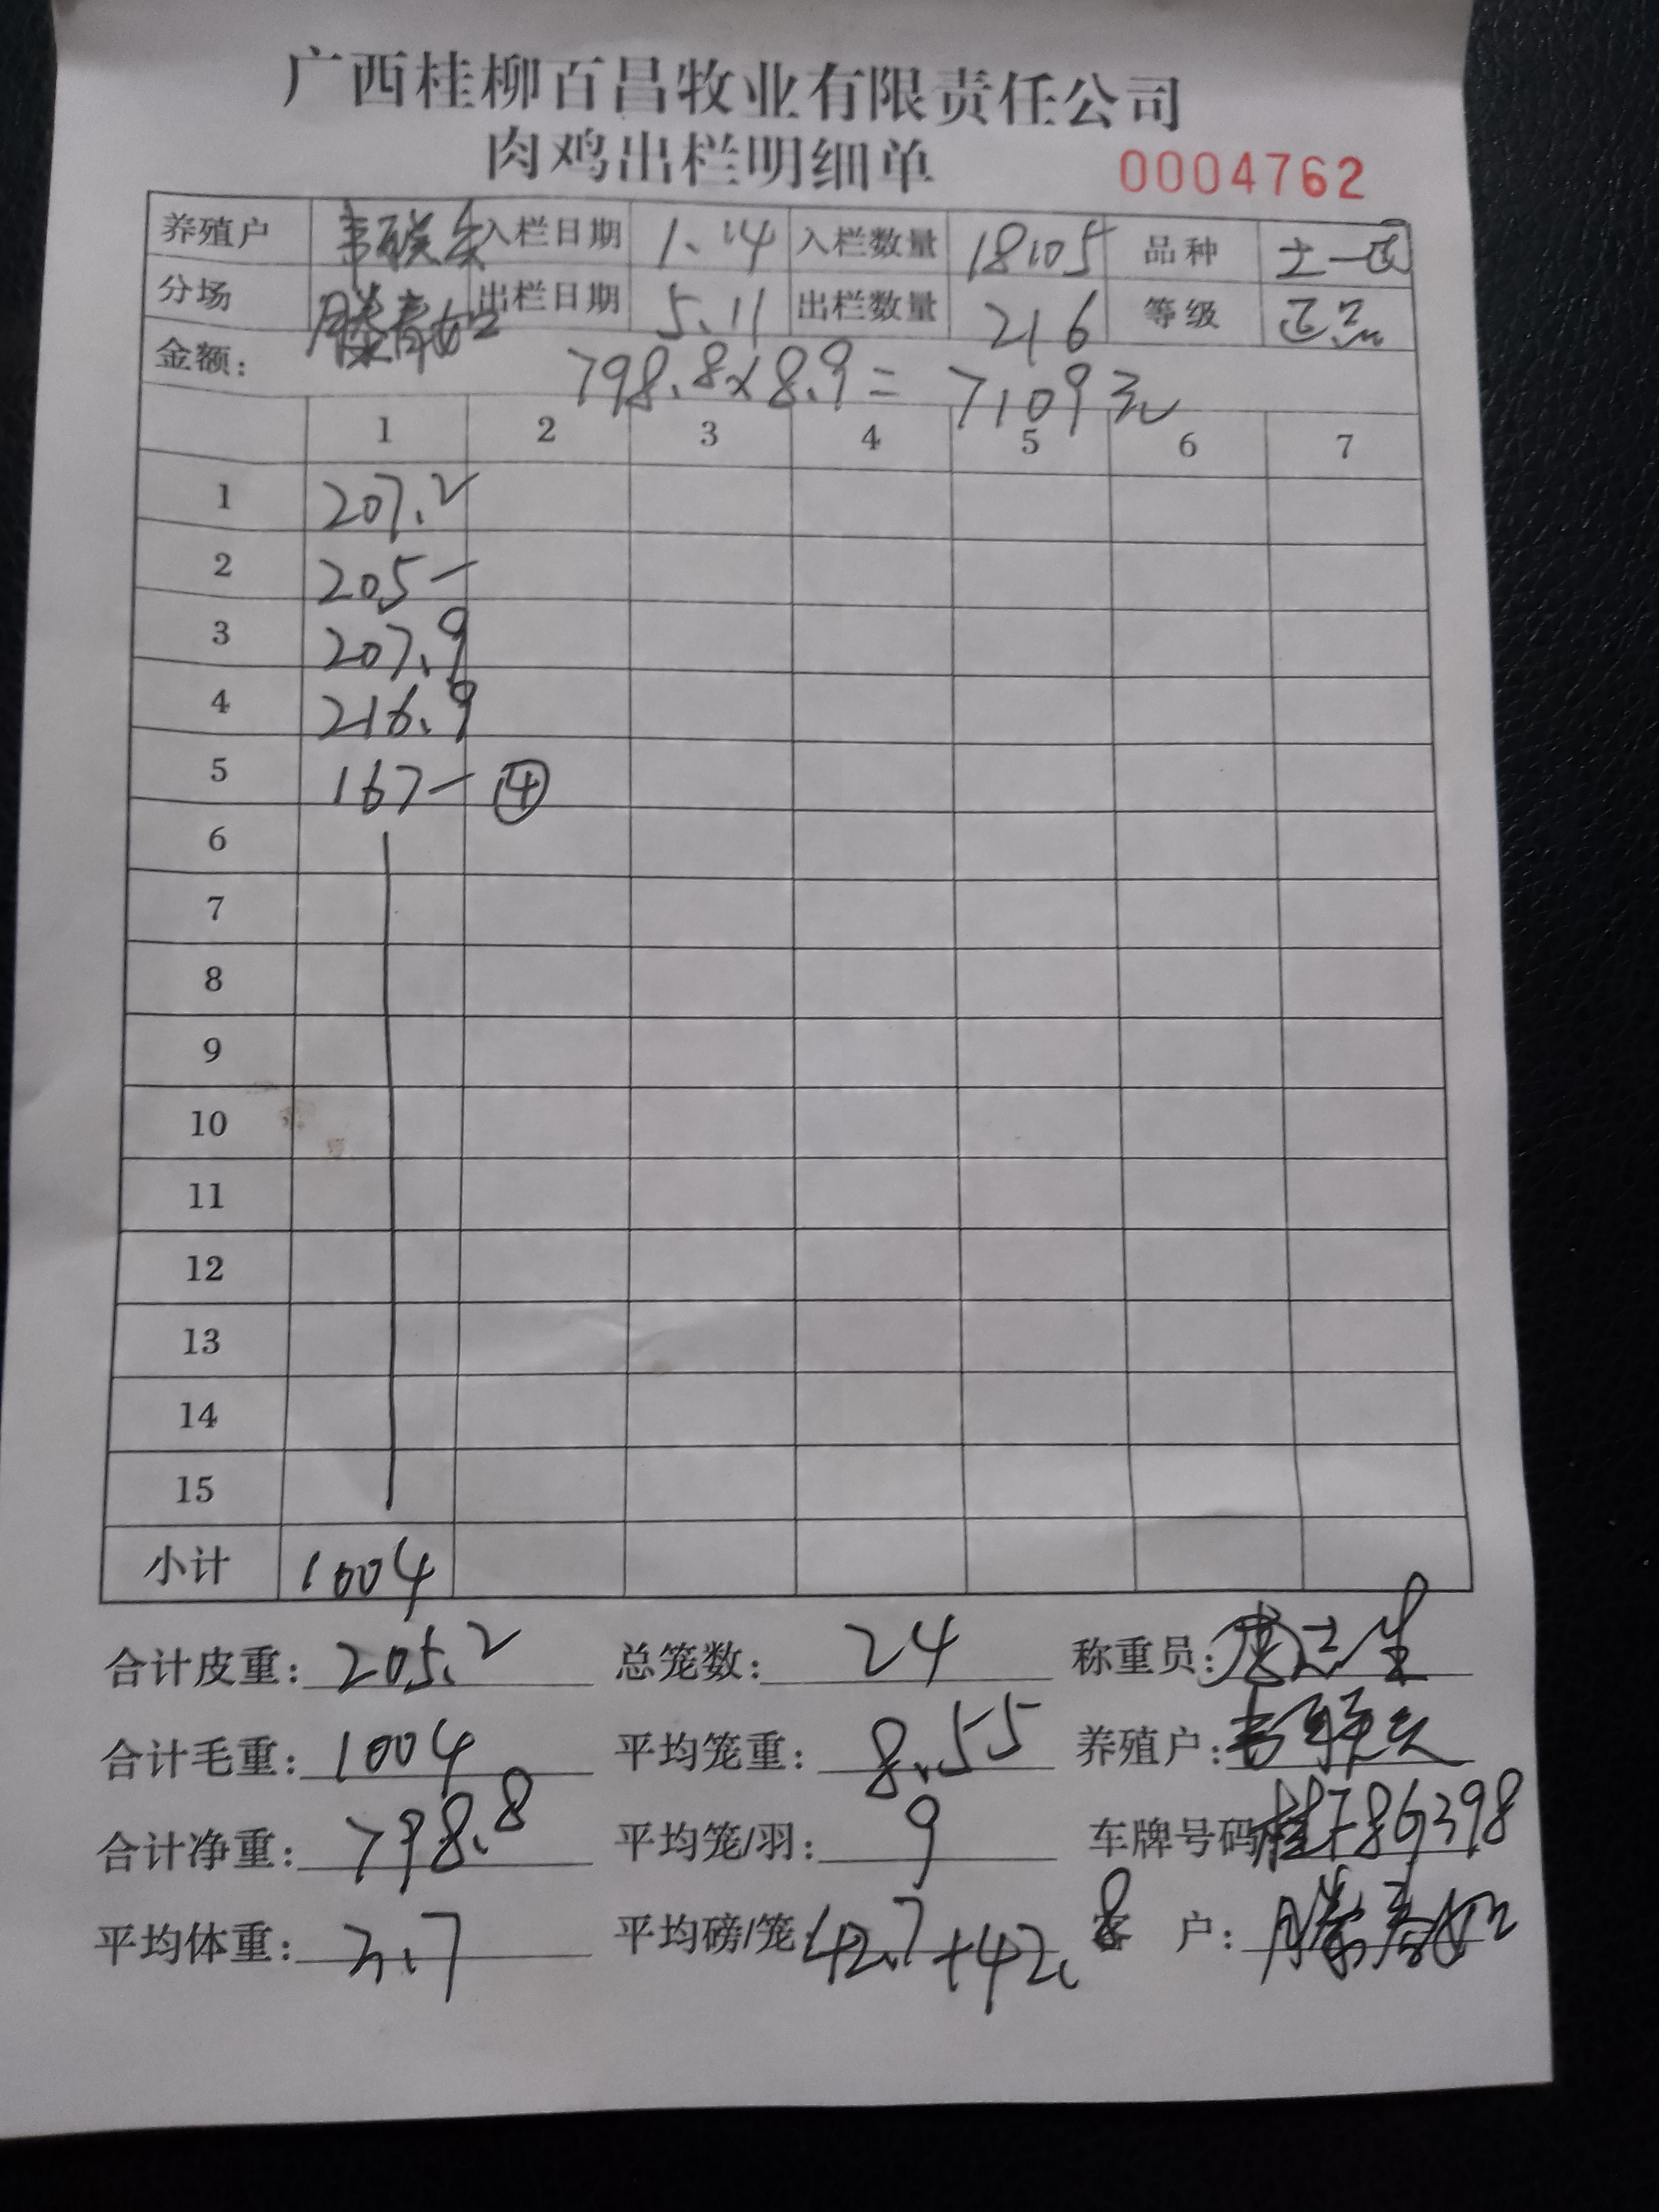 广西桂柳百昌牧业有限责任公司
肉鸡出栏明细单 0004762
养殖户 入栏日期 1.14 入栏数量 18105 品种 土一
分场 滕春 出栏日期 5.11 出栏数量 216 等级 正品
金额: 798.8×8.9=7109元
1 2 3 4 5 6 7
1 207.2
2 205-
3 207.9
4 216.9
5 167- ④
6
7
8
9
10
11
12
13
14
15
小计 1004
合计皮重: 205.2 总笼数: 24 称重员:
合计毛重: 1004 平均笼重: 8.55 养殖户:
合计净重: 798.8 平均笼/羽: 9 车牌号码
平均体重: 3.7 平均磅/笼: 42.7+42.8 客户: 滕春